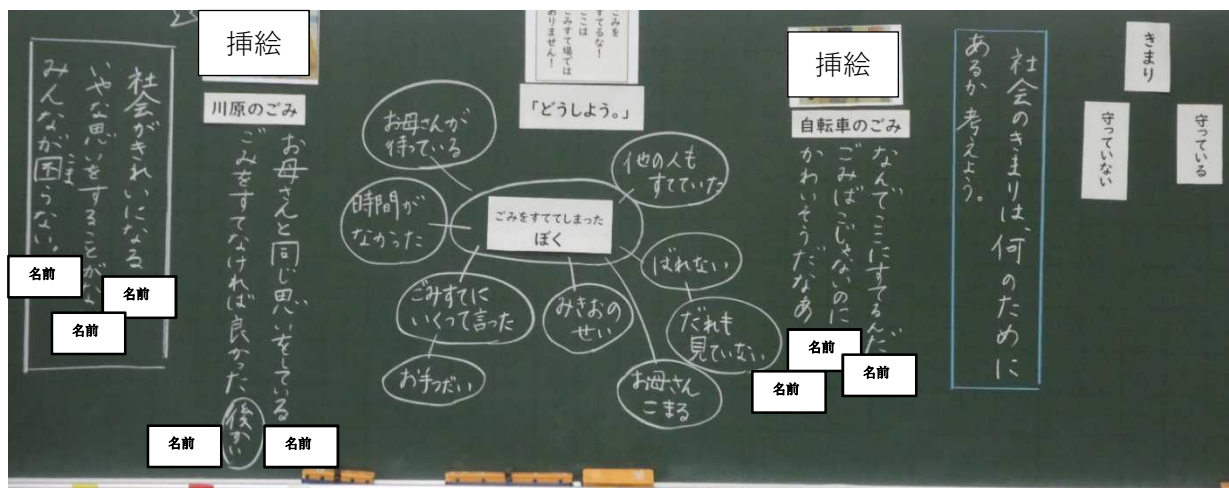 きまり
守っている
守っていない
社会のきまりは、何のために
あるか考えよう。
挿絵
自転車のごみ
なんでここにすてるんだ
ごみばこじゃないのに
かわいそうだなあ
名前
名前
名前
ごみを
すてるな!
ここは
ごみすて場では
ありません!
「どうしよう。」
ごみをすててしまった
ぼく
他の人も
すてていた
ばれない
だれも
見ていない
お母さん
こまる
みきおの
せい
ごみすてに
いくって言った
お手つだい
時間が
なかった
お母さんが
待っている
挿絵
川原のごみ
お母さんと同じ思いをしている
ごみをすてなければ良かった
後かい
名前
名前
社会がきれいになる
いやな思いをすることがな
みんなが困らない。
こま
名前
名前
名前